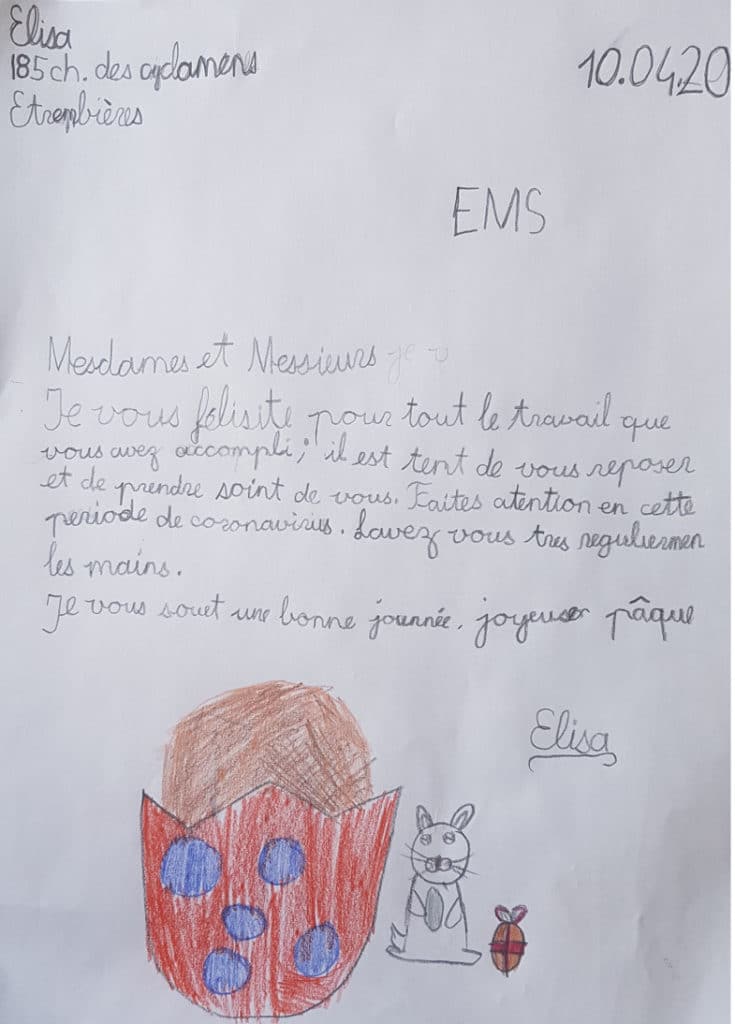 Elisa
185 ch. des cyclamens
Etrembières
10.04.20
EMS
Mesdames et Messieurs je v
Je vous felisite pour tout le travail que
vous avez accompli, il est tent de vous reposer
et de prendre soint de vous. Faites atention en cette
periode de coronavirus. Lavez vous tres reguliermen
les mains.
Je vous souet une bonne journnée, joyeuser pâque
Elisa